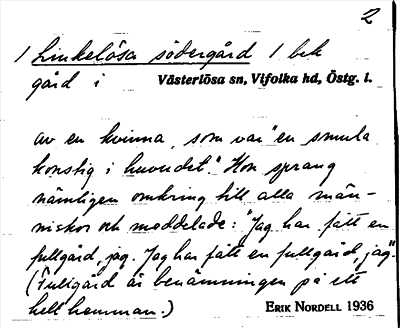 2
/ Linkelösa södergård / bek
gård i Västerlösa sn, Vifolka hd, Östg. l.
av en kvinna, som var "en smula
konstig i huvudet." Hon sprang
nämligen omkring till alla män-
niskor och meddelade: "Jag har fått en
fullgård, jag. Jag har fått en fullgård, jag".
(Fullgård är benämningen på ett
helt hemman.)
ERIK NORDELL 1936